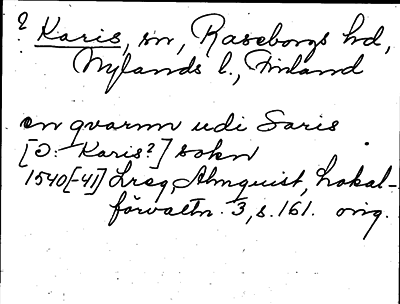 ? Karis, sn, Raseborgs hd,
Nylands l., Finland
en qvarnn udi Saris
[ɔ: Karis?] sokn
1540[-41] Lreg, Almquist, Lokal-
förvaltn. 3, s. 161. orig.